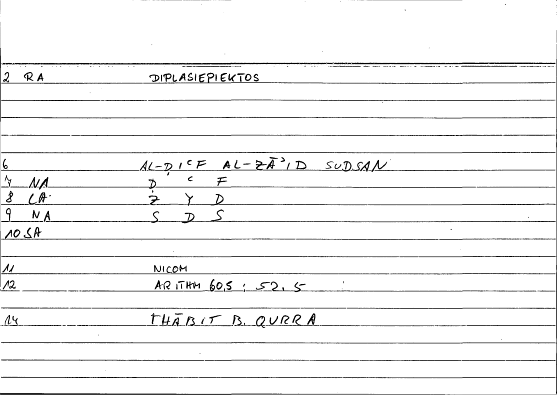 2 RA DIPLASIEPIEKTOS
6 AL-ḌIʿF AL-ZĀʾID SUDSAN
7 NA Ḍ ʿ F
8 LA Z Y D
9 NA S D S
10 SA
11 NICOM
12 ARITHM 60,5 : 52,5
14 THĀBIT B. QURRA